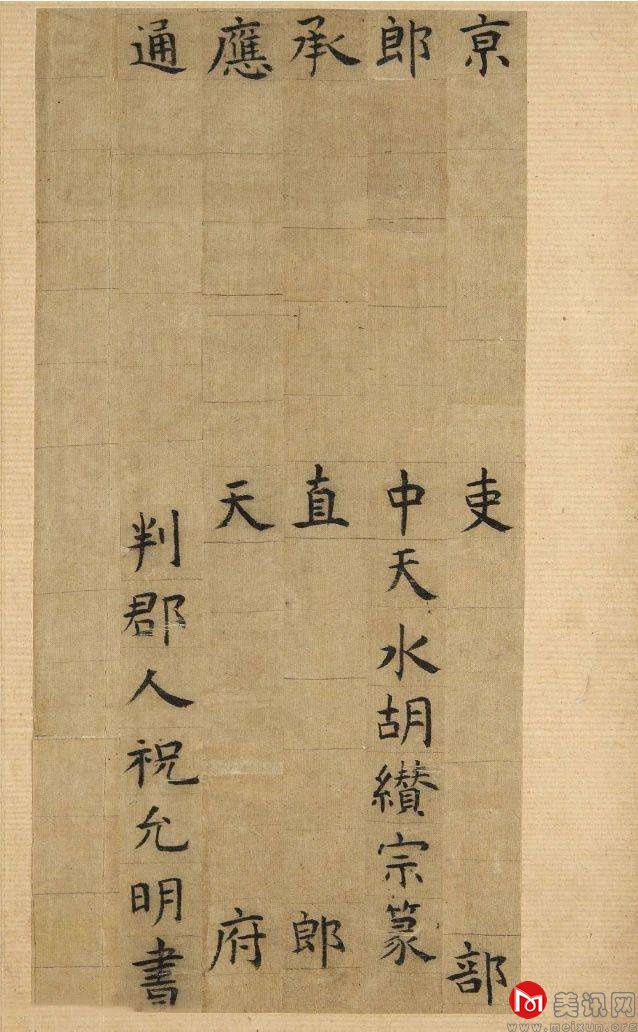 京吏部
郎中天水胡纉宗篆
承直郎
應天府
通判郡人祝允明書
美讯网
www.meixun.org